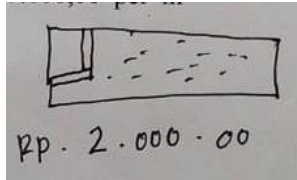 Rp. 2.000.00